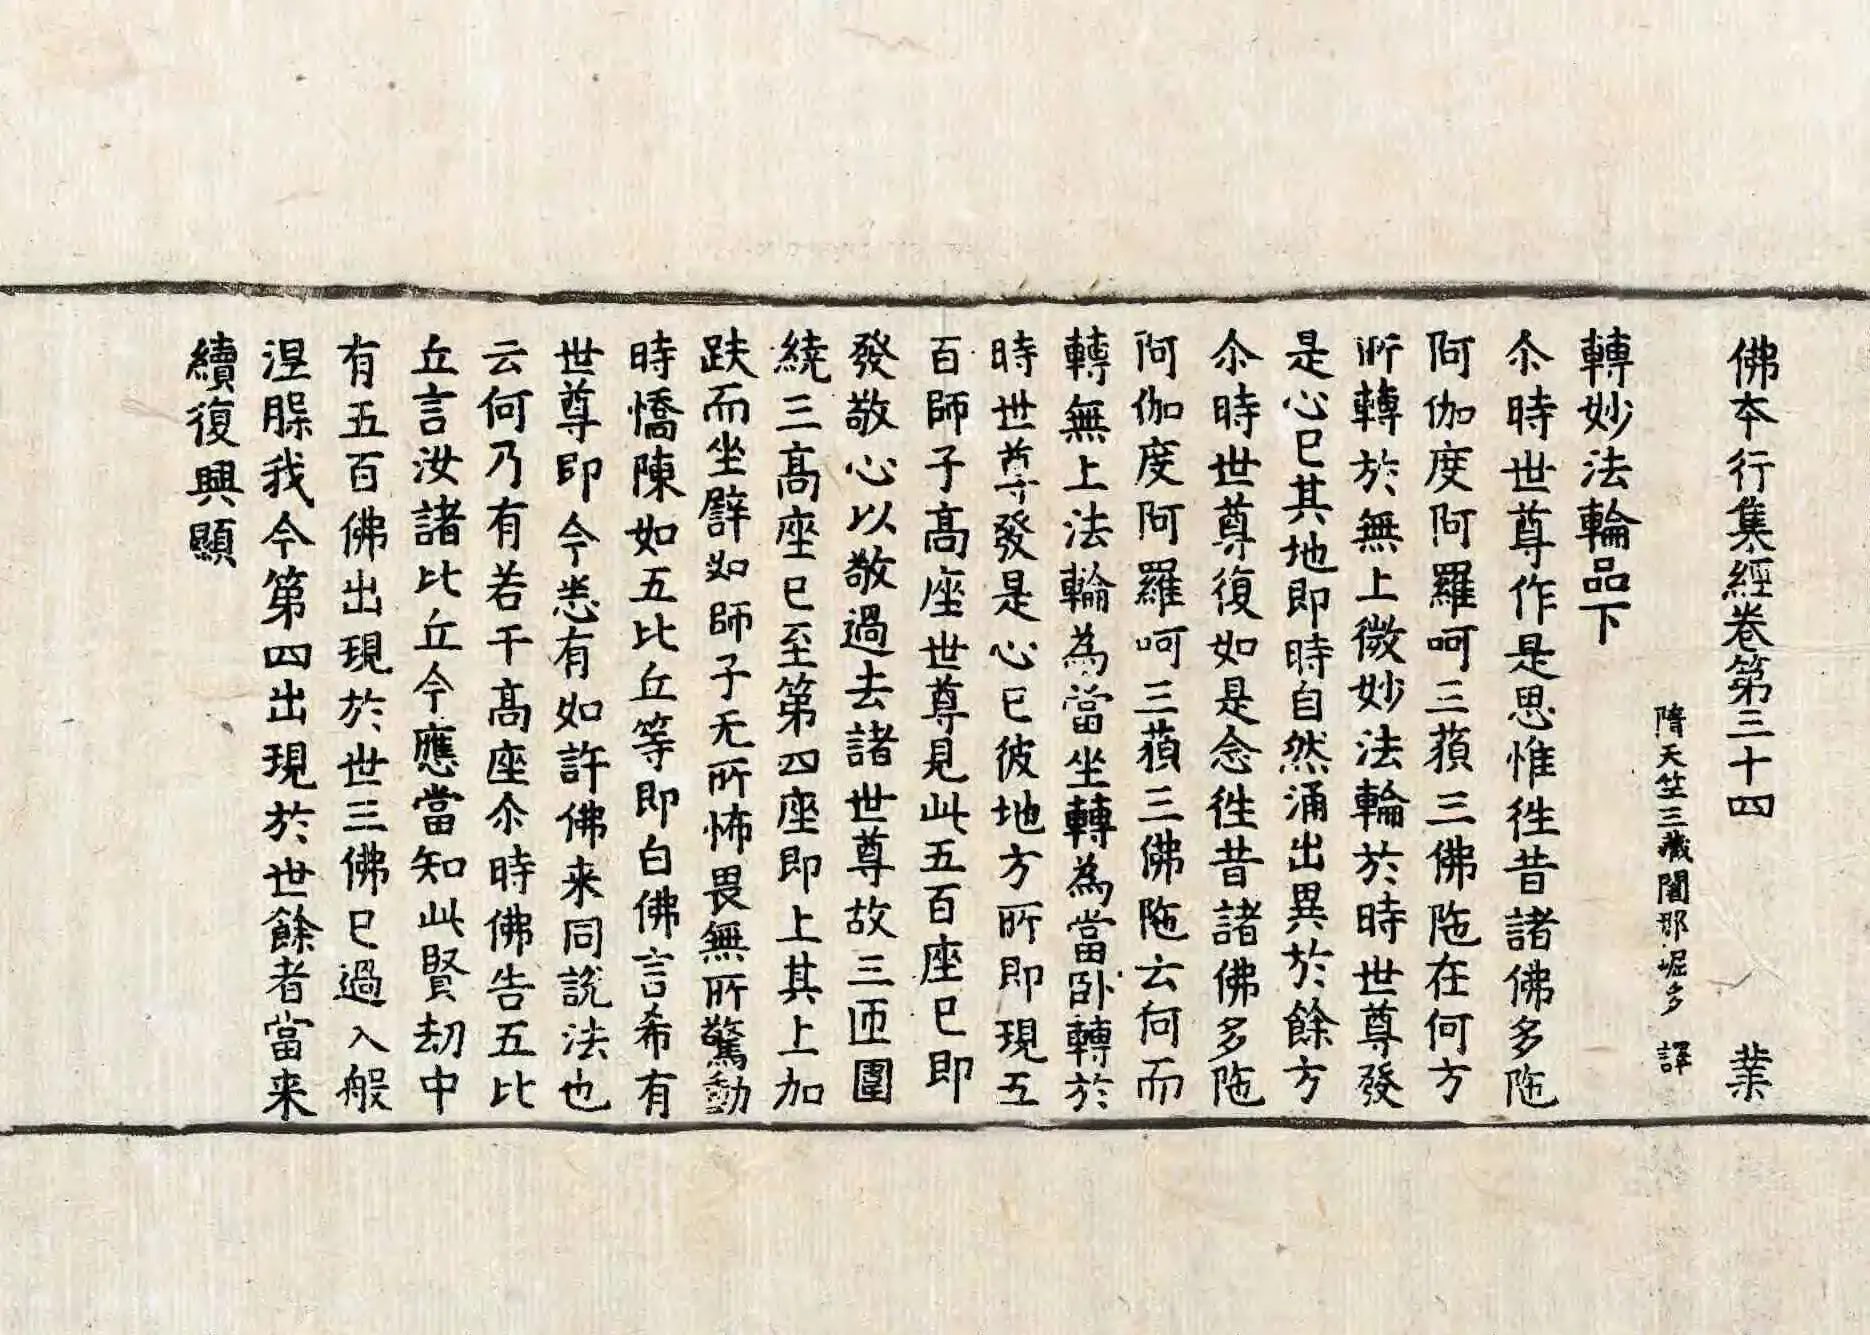 佛本行集經卷第三十四 業
隋天竺三藏闍那崛多 譯
轉妙法輪品下
尒時世尊作是思惟徃昔諸佛多陁
阿伽度阿羅呵三藐三佛陁在何方
所轉於無上微妙法輪於時世尊發
是心已其地即時自然涌出異於餘方
尒時世尊復如是念徃昔諸佛多陁
阿伽度阿羅呵三藐三佛陁云何而
轉無上法輪為當坐轉為當卧轉於
時世尊發是心已彼地方所即現五
百師子高座世尊見此五百座已即
發敬心以敬過去諸世尊故三匝圍
繞三高座已至第四座即上其上加
趺而坐譬如師子无所怖畏無所驚動
時憍陳如五比丘等即白佛言希有
世尊即今悉有如許佛来同說法也
云何乃有若干高座尒時佛告五比
丘言汝諸比丘今應當知此賢劫中
有五百佛出現於世三佛已過入般
涅槃我今第四出現於世餘者當来
續復興顯